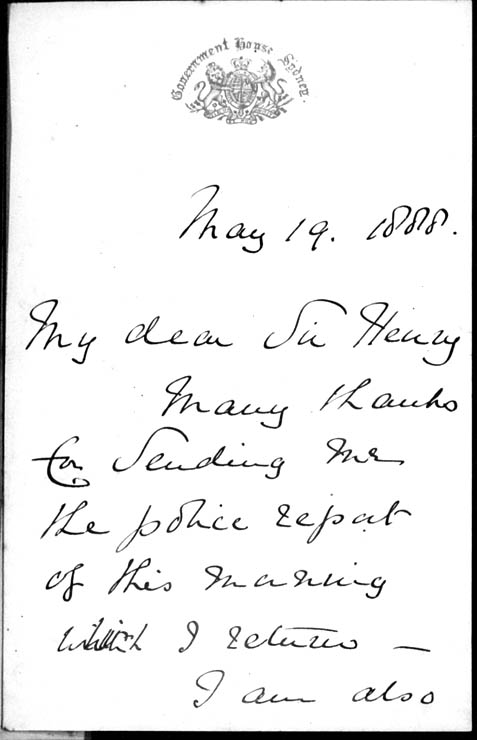 Government House Sydney.
May 19. 1888.
My dear Sir Henry
Many thanks
for sending me
the police report
of this morning
which I return —
I am also